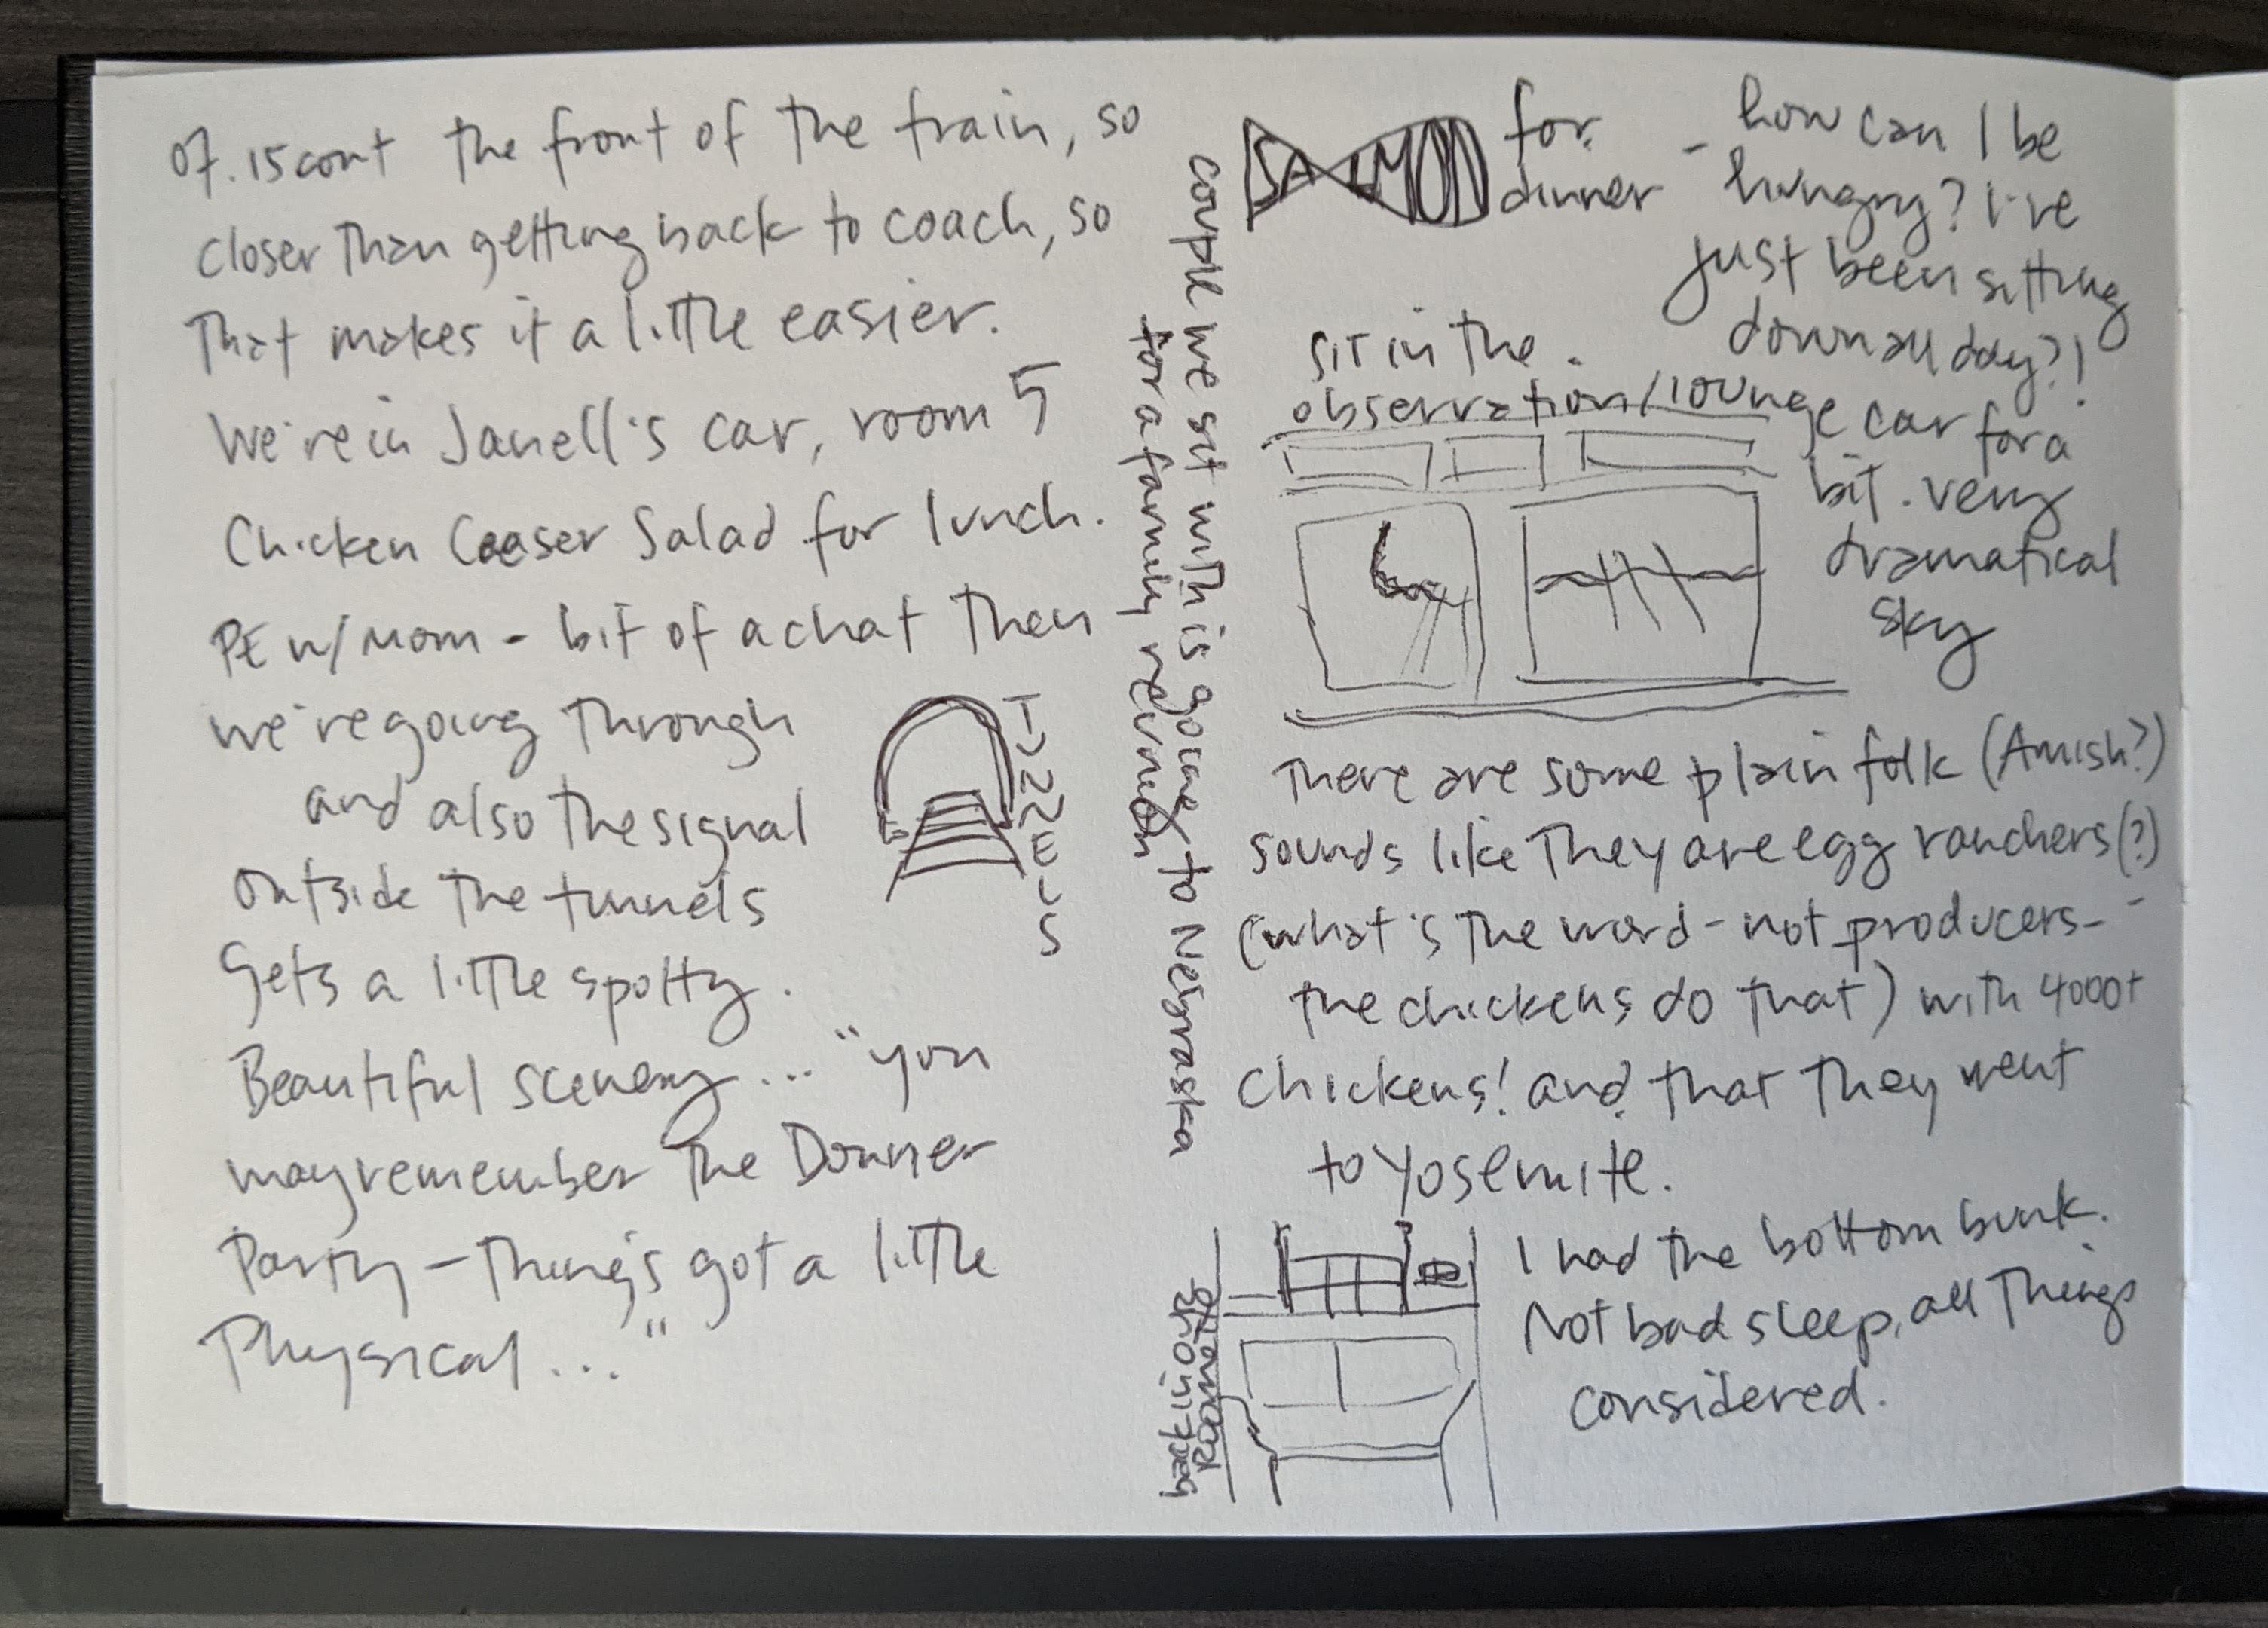 07.15 cont the front of the train, so
closer than getting back to coach, so
that makes it a little easier.
We're in Janell's car, room 5
Chicken Ceaser Salad for lunch.
PE w/Mom - bit of a chat then
we're going through
TUNNELS
and also the signal
outside the tunnels
gets a little spotty.
Beautiful scenery... "you
may remember the Donner
Party - things got a little
Physical..."
couple we sit with is going to Nebraska
for a family reunion
SALMON for
dinner
- how can I be
hungry? I've
just been sitting
down all day?!
sit in the
observation/lounge car for a
bit. very
dramatical
sky
There are some plain folk (Amish?)
sounds like they are egg ranchers(?)
(what's the word - not producers -
the chickens do that) with 4000+
chickens! and that they went
to Yosemite.
back in our
Roomette
I had the bottom bunk.
Not bad sleep, all things
considered.